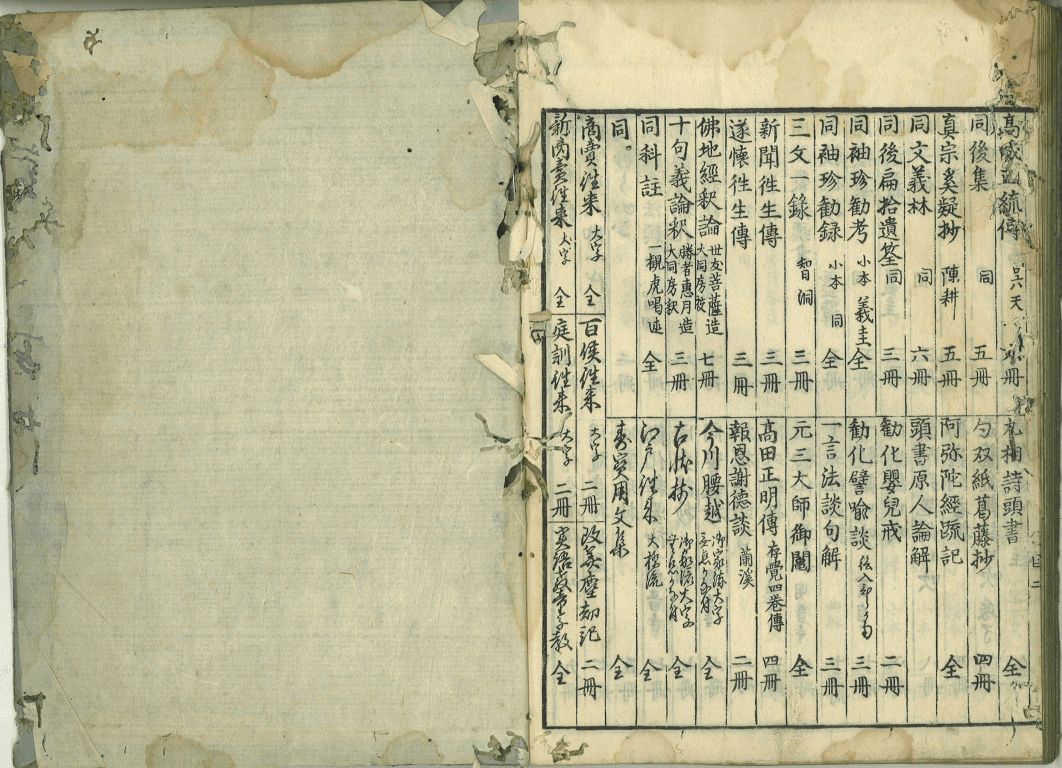 高 正統傳 六天 冊
同後集 同 五冊
真宗奚疑抄 陳耕 五冊
同文義林 同 六冊
同後扁拾遺筌 同 三冊
同袖珍勧考 小本 義圭 全
同袖珍勧録 小本 同 全
三文一録 智洞 三冊
新聞徃生傳 三冊
遂懐徃生傳 三冊
佛地經釈論 世友菩薩造 大同房 七冊
十句義論釈 勝者惠月造 大同房釈 三冊
同科註 一観虎唱 全
同
商賣徃来 大字 全
新商賣徃来 大字 全
百侯徃来 大字 二冊
庭訓徃来 大字 二冊
詩頭書 全
勺双紙葛藤抄 四冊
阿弥陀經疏記 全
頭書原人論解
勧化嬰兒戒 二冊
勧化譬喩談 絵入 三冊
一言法談句解 三冊
元三大師御鬮 全
髙田正明傳 存覺四巻傳 四冊
報恩謝德談 蘭溪 二冊
今川腰越 御家流大字 全
古状揃 御家流大字 全
江戸徃来 大橋流 全
寿実用文集 全
改算塵劫記 二冊
実語教童子教 全